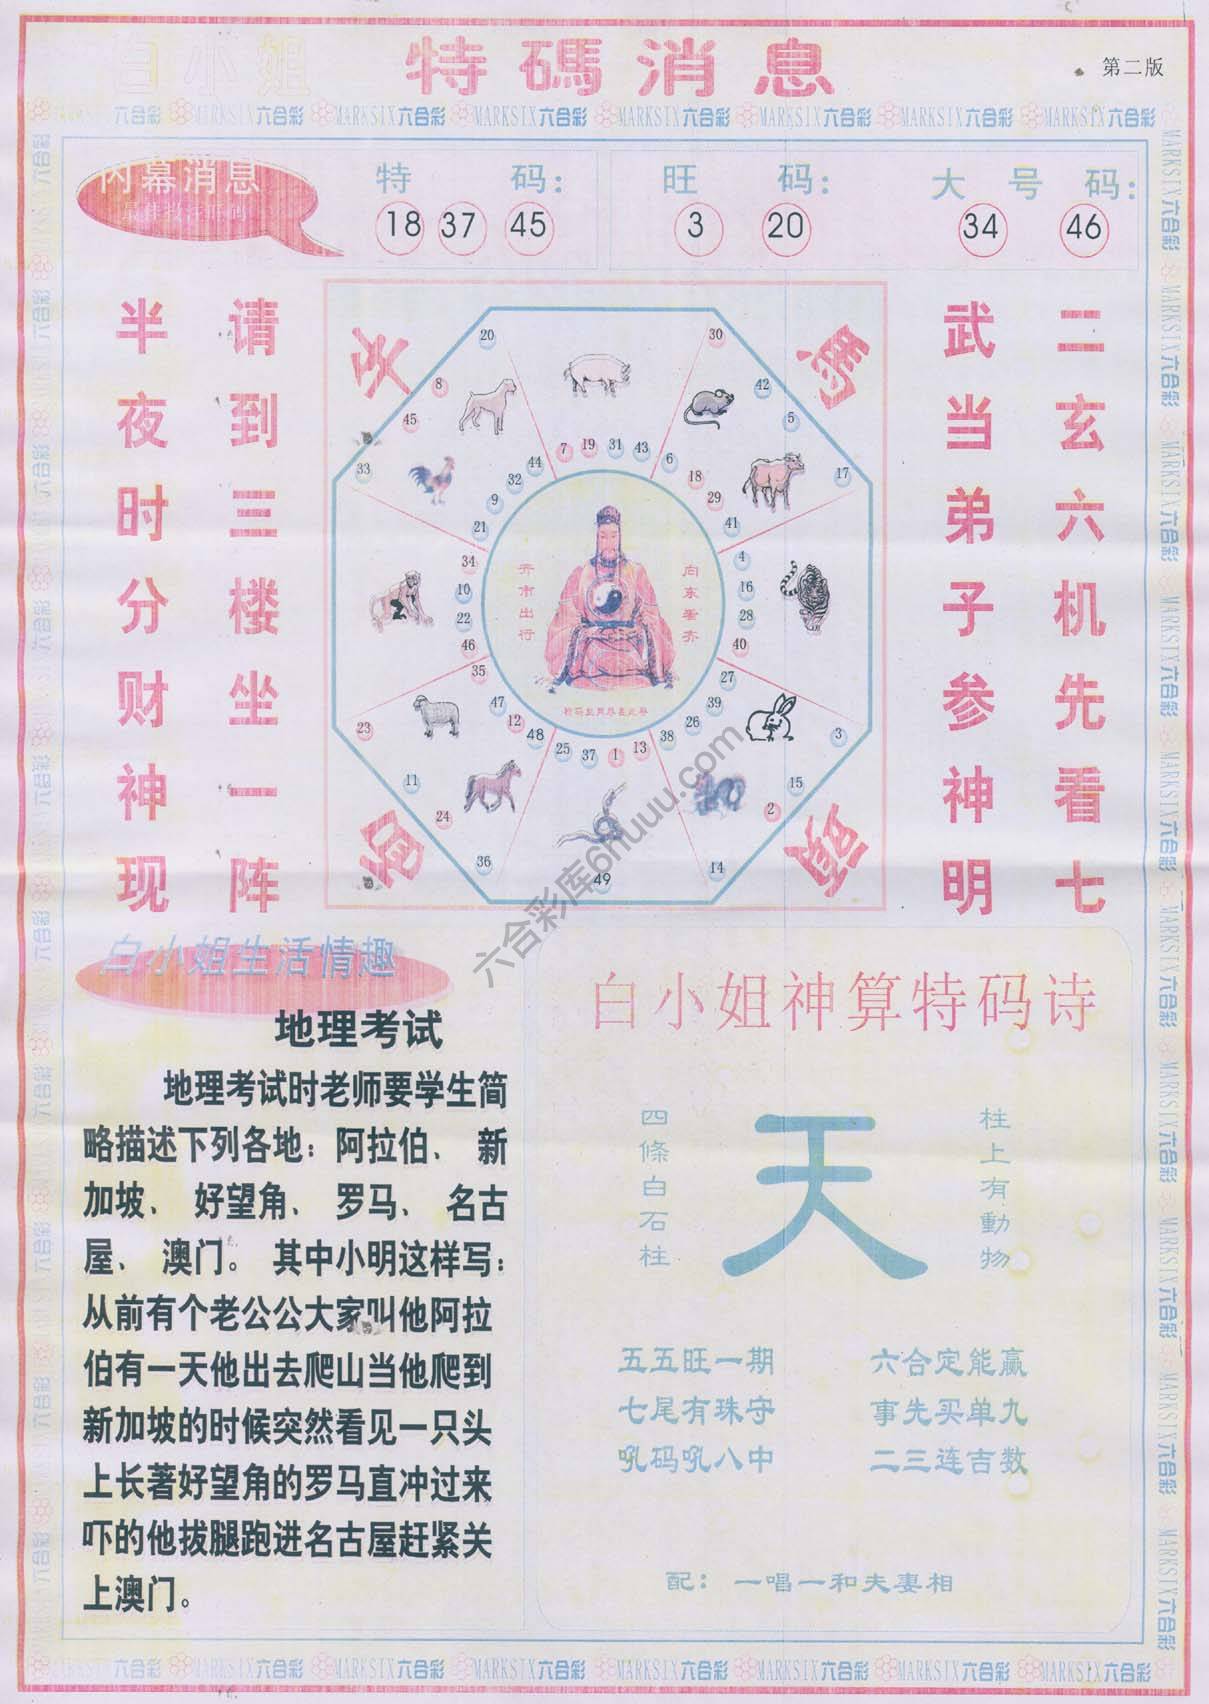 白小姐 特碼消息 第二版
MARKSIX六合彩 MARKSIX六合彩 MARKSIX六合彩 MARKSIX六合彩 MARKSIX六合彩 MARKSIX六合彩 MARKSIX六合彩 MARKSIX六合彩
内幕消息
特 码:
18 37 45
旺 码:
3 20
大 号 码:
34 46
请到三楼坐一阵
半夜时分财神现
二玄六机先看七
武当弟子参神明
天
馬
20
30
8
42
45
5
33
17
7 19 31 43
44
6
32
18
9
29
21
41
34
4
10
16
22
28
46
40
35
27
47
39
12
26
48
38
25 37 1 13
23
3
11
15
24
2
36
14
49
齐市出行
向东看齐
白小姐生活情趣
地理考试
地理考试时老师要学生简
略描述下列各地：阿拉伯、新
加坡、好望角、罗马、名古
屋、澳门。其中小明这样写：
从前有个老公公大家叫他阿拉
伯有一天他出去爬山当他爬到
新加坡的时候突然看见一只头
上长著好望角的罗马直冲过来
吓的他拔腿跑进名古屋赶紧关
上澳门。
白小姐神算特码诗
柱上有動物
天
四條白石柱
五五旺一期 六合定能赢
七尾有珠守 事先买单九
吼码吼八中 二三连吉数
配：一唱一和夫妻相
六合彩库6huuu.com
MARKSIX六合彩 MARKSIX六合彩 MARKSIX六合彩 MARKSIX六合彩 MARKSIX六合彩 MARKSIX六合彩 MARKSIX六合彩